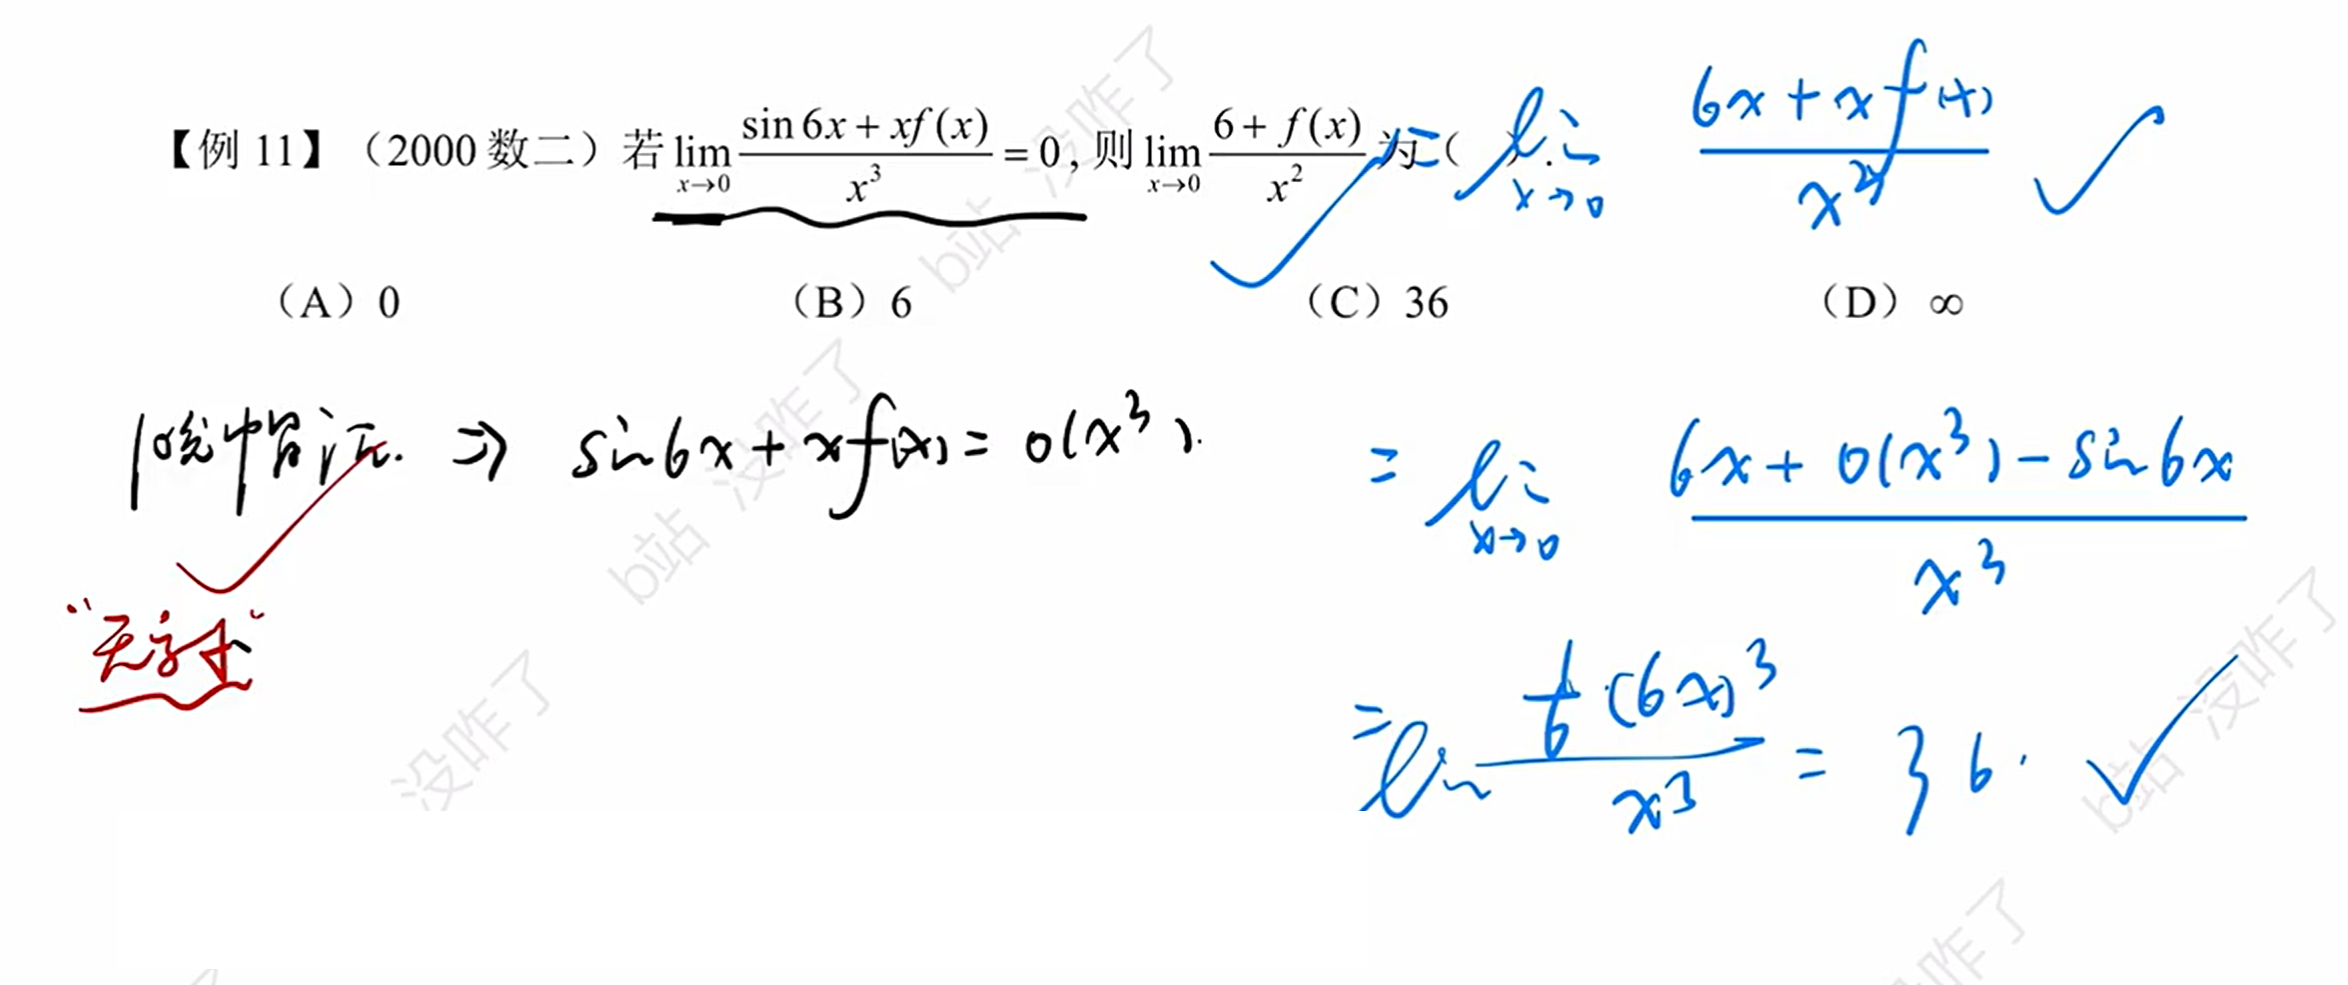 【例 11】（2000 数二）若 lim_{x→0} (sin 6x + xf(x))/x³ = 0, 则 lim_{x→0} (6 + f(x))/x² 为（ ）.
= lim_{x→0} (6x + x f(x))/x³
（A）0 （B）6 （C）36 （D）∞
⇒ sin6x + xf(x) = o(x³).
= lim_{x→0} (6x + o(x³) - sin6x)/x³
= lim (1/6 · (6x)³)/x³ = 36.
b站 没咋了
b站 没咋了
没咋了
b站 没咋了
没咋了